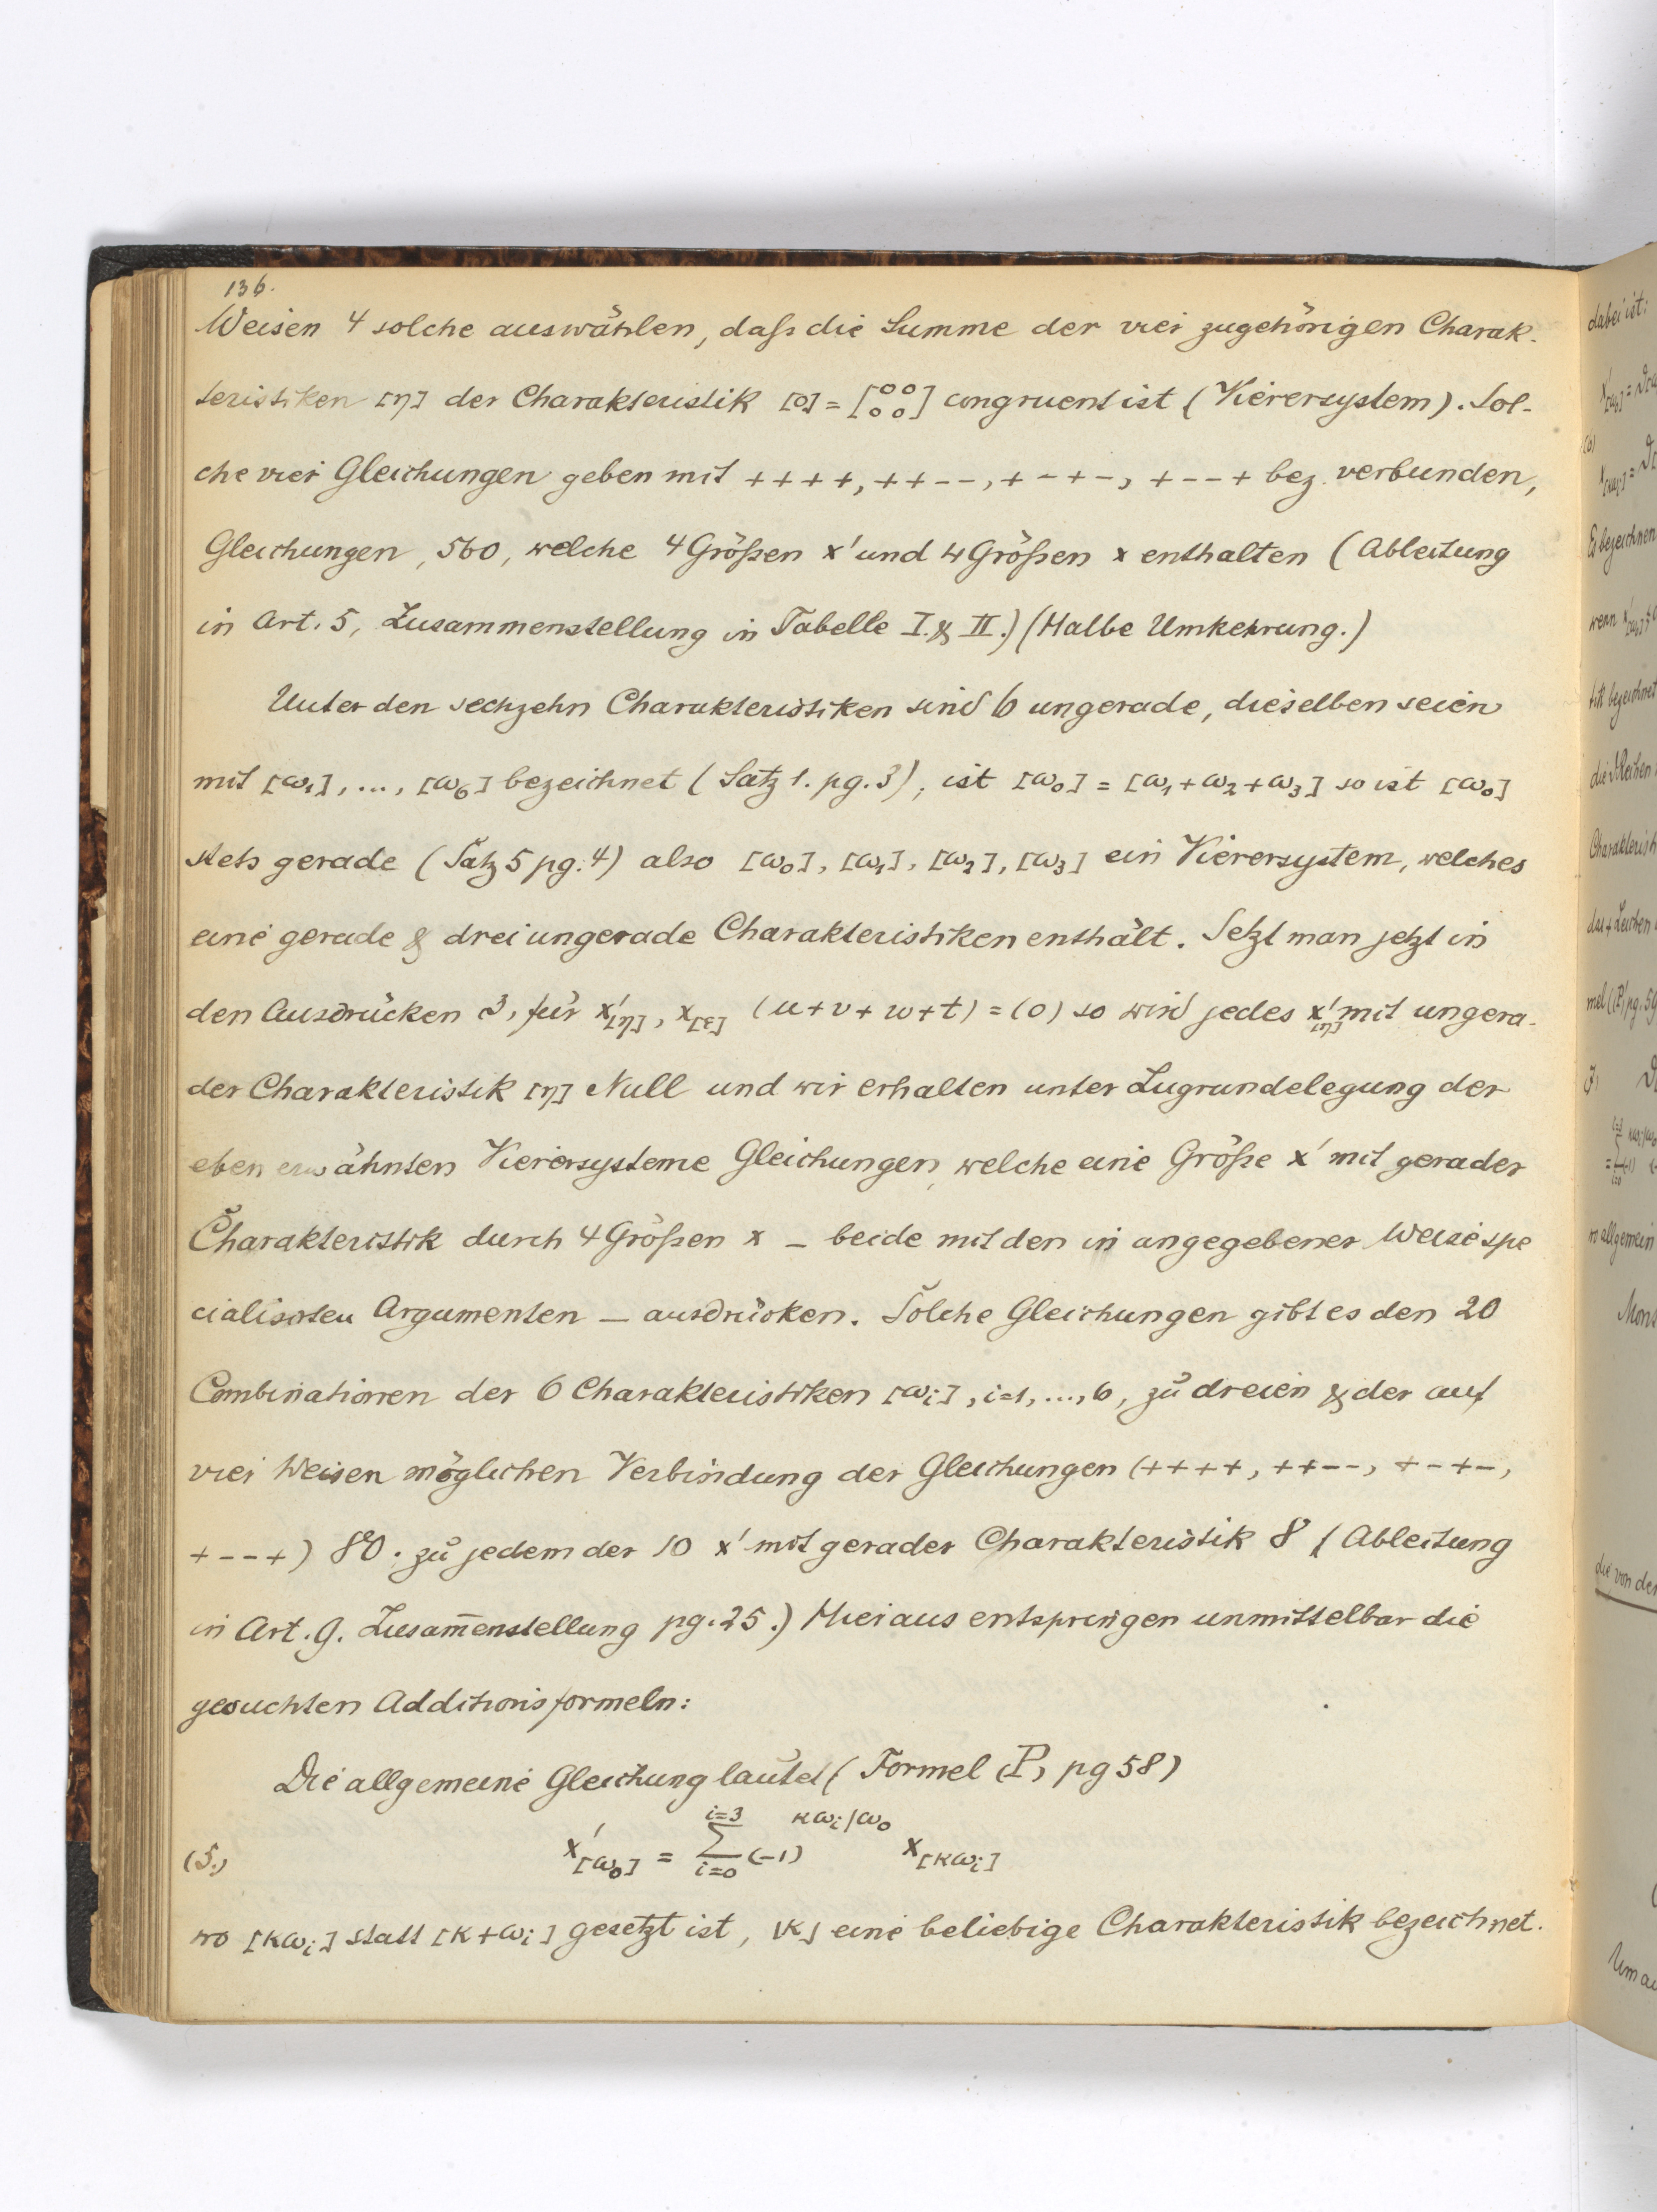 136.
Weisen 4 solche auswählen, daſs die Summe der vier zugehörigen Charak-
teristiken [η] der Charakteristik [0] = [00 00] congruent ist (Vierersystem). Sol-
che vier Gleichungen geben mit ++++, ++--, +-+-, +--+ bez. verbunden,
Gleichungen, 560, welche 4 Gröſsen x' und 4 Gröſsen x enthalten (Ableitung
in Art. 5, Zusammenstellung in Tabelle I. & II.) (Halbe Umkehrung.)
Unter den sechzehn Charakteristiken sind 6 ungerade, dieselben seien
mit [ω₁], ..., [ω₆] bezeichnet (Satz 1. pg. 3), ist [ω₀] = [ω₁+ω₂+ω₃] so ist [ω₀]
stets gerade (Satz 5 pg. 4) also [ω₀], [ω₁], [ω₂], [ω₃] ein Vierersystem, welches
eine gerade & drei ungerade Charakteristiken enthält. Setzt man jetzt in
den Ausdrücken 3, für x'[η], x[ε] (u+v+w+t) = (0) so wird jedes x'[η] mit ungera-
der Charakteristik [η] Null und wir erhalten unter Zugrundelegung der
eben erwähnten Vierersysteme Gleichungen, welche eine Gröſse x' mit gerader
Charakteristik durch 4 Gröſsen x – beide mit den in angegebener Weise spe
cialisirten Argumenten – ausdrücken. Solche Gleichungen gibt es den 20
Combinationen der 6 Charakteristiken [ωᵢ], i=1, ..., 6, zu dreien & der auf
vier Weisen möglichen Verbindung der Gleichungen (++++, ++--, +-+-,
+--+) 80. zu jedem der 10 x' mit gerader Charakteristik 8 (Ableitung
in Art. 9. Zusam̄enstellung pg. 25.) Hieraus entspringen unmittelbar die
gesuchten Additionsformeln:
Die allgemeine Gleichung lautet (Formel (P) pg 58)
(5.) x'[ω₀] = Σ i=0 i=3 (-1) κωᵢ|ω₀ x[κωᵢ]
wo [κωᵢ] statt [κ+ωᵢ] gesetzt ist, [κ] eine beliebige Charakteristik bezeichnet.
dabei ist:
Es bezeichnen
wenn
die
Charakterist
mel (P) pg. 59
wo allgemein
die von der